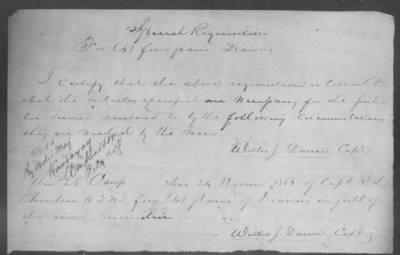 Special Requisition
For (4) four pairs Drawers
I certify that the above requisition is correct
that the articles specified are necessary for the pub
lic service rendered so by the following circumstances
they are needed by the men
Willis J. Capt
By order Maj
at Camp this 24 1863 of Capt
A.Q.M. four (4) pairs of Drawers in full of
the above requisition
Willis J. Capt